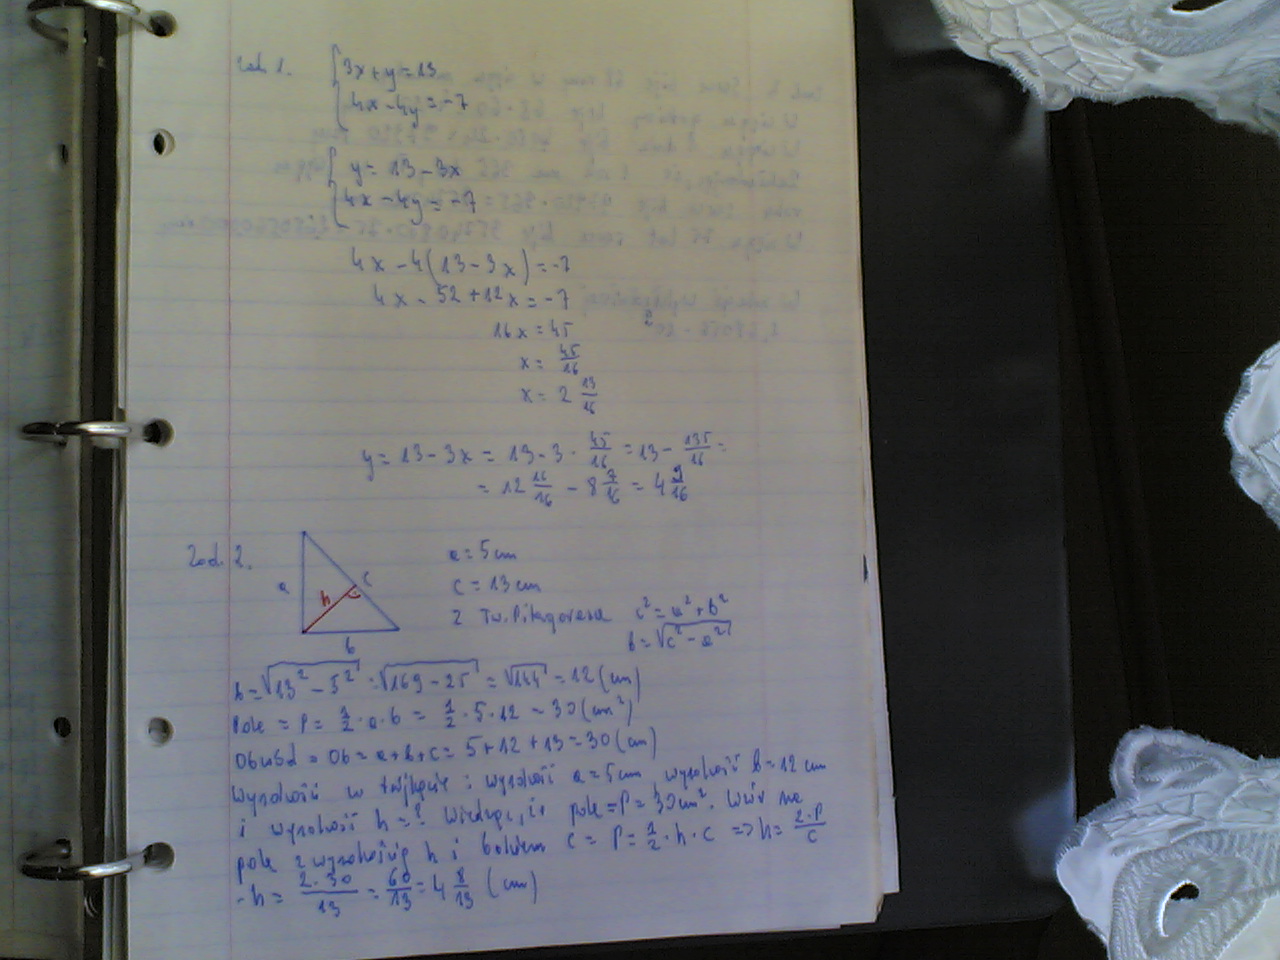 Zad. 1.
3x + y = 13
4x - 4y = -7
y = 13 - 3x
4x - 4y = -7
4x - 4(13 - 3x) = -7
4x - 52 + 12x = -7
16x = 45
x = 45/16
x = 2 13/16
y = 13 - 3x = 13 - 3 · 45/16 = 13 - 135/16 =
= 12 16/16 - 8 7/16 = 4 9/16
Zad. 2.
a
h
c
b
a = 5 cm
c = 13 cm
Z Tw. Pitagorasa c² = a² + b²
b = √(c² - a²)
b = √(13² - 5²) = √(169 - 25) = √144 = 12 (cm)
Pole = P = 1/2 · a · b = 1/2 · 5 · 12 = 30 (cm²)
Obwód = Ob = a + b + c = 5 + 12 + 13 = 30 (cm)
Wysokość w trójkącie : wysokość a = 5 cm, wysokość b = 12 cm
i wysokość h = ? Wiedząc, że pole = P = 30 cm². Wzór na
pole z wysokością h i bokiem c = P = 1/2 · h · c => h = 2·P/c
- h = 2·30/13 = 60/13 = 4 8/13 (cm)